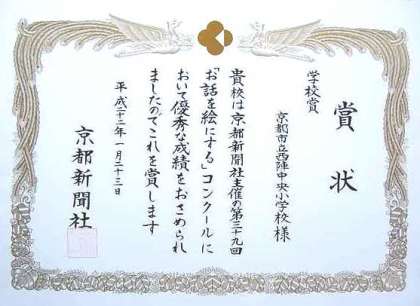 賞状
学校賞
京都市立西陣中央小学校様
貴校は京都新聞社主催の第三十九回
「お話を絵にする」コンクールに
おいて優秀な成績をおさめられ
ましたのでこれを賞します
平成二十二年一月二十三日
京都新聞社